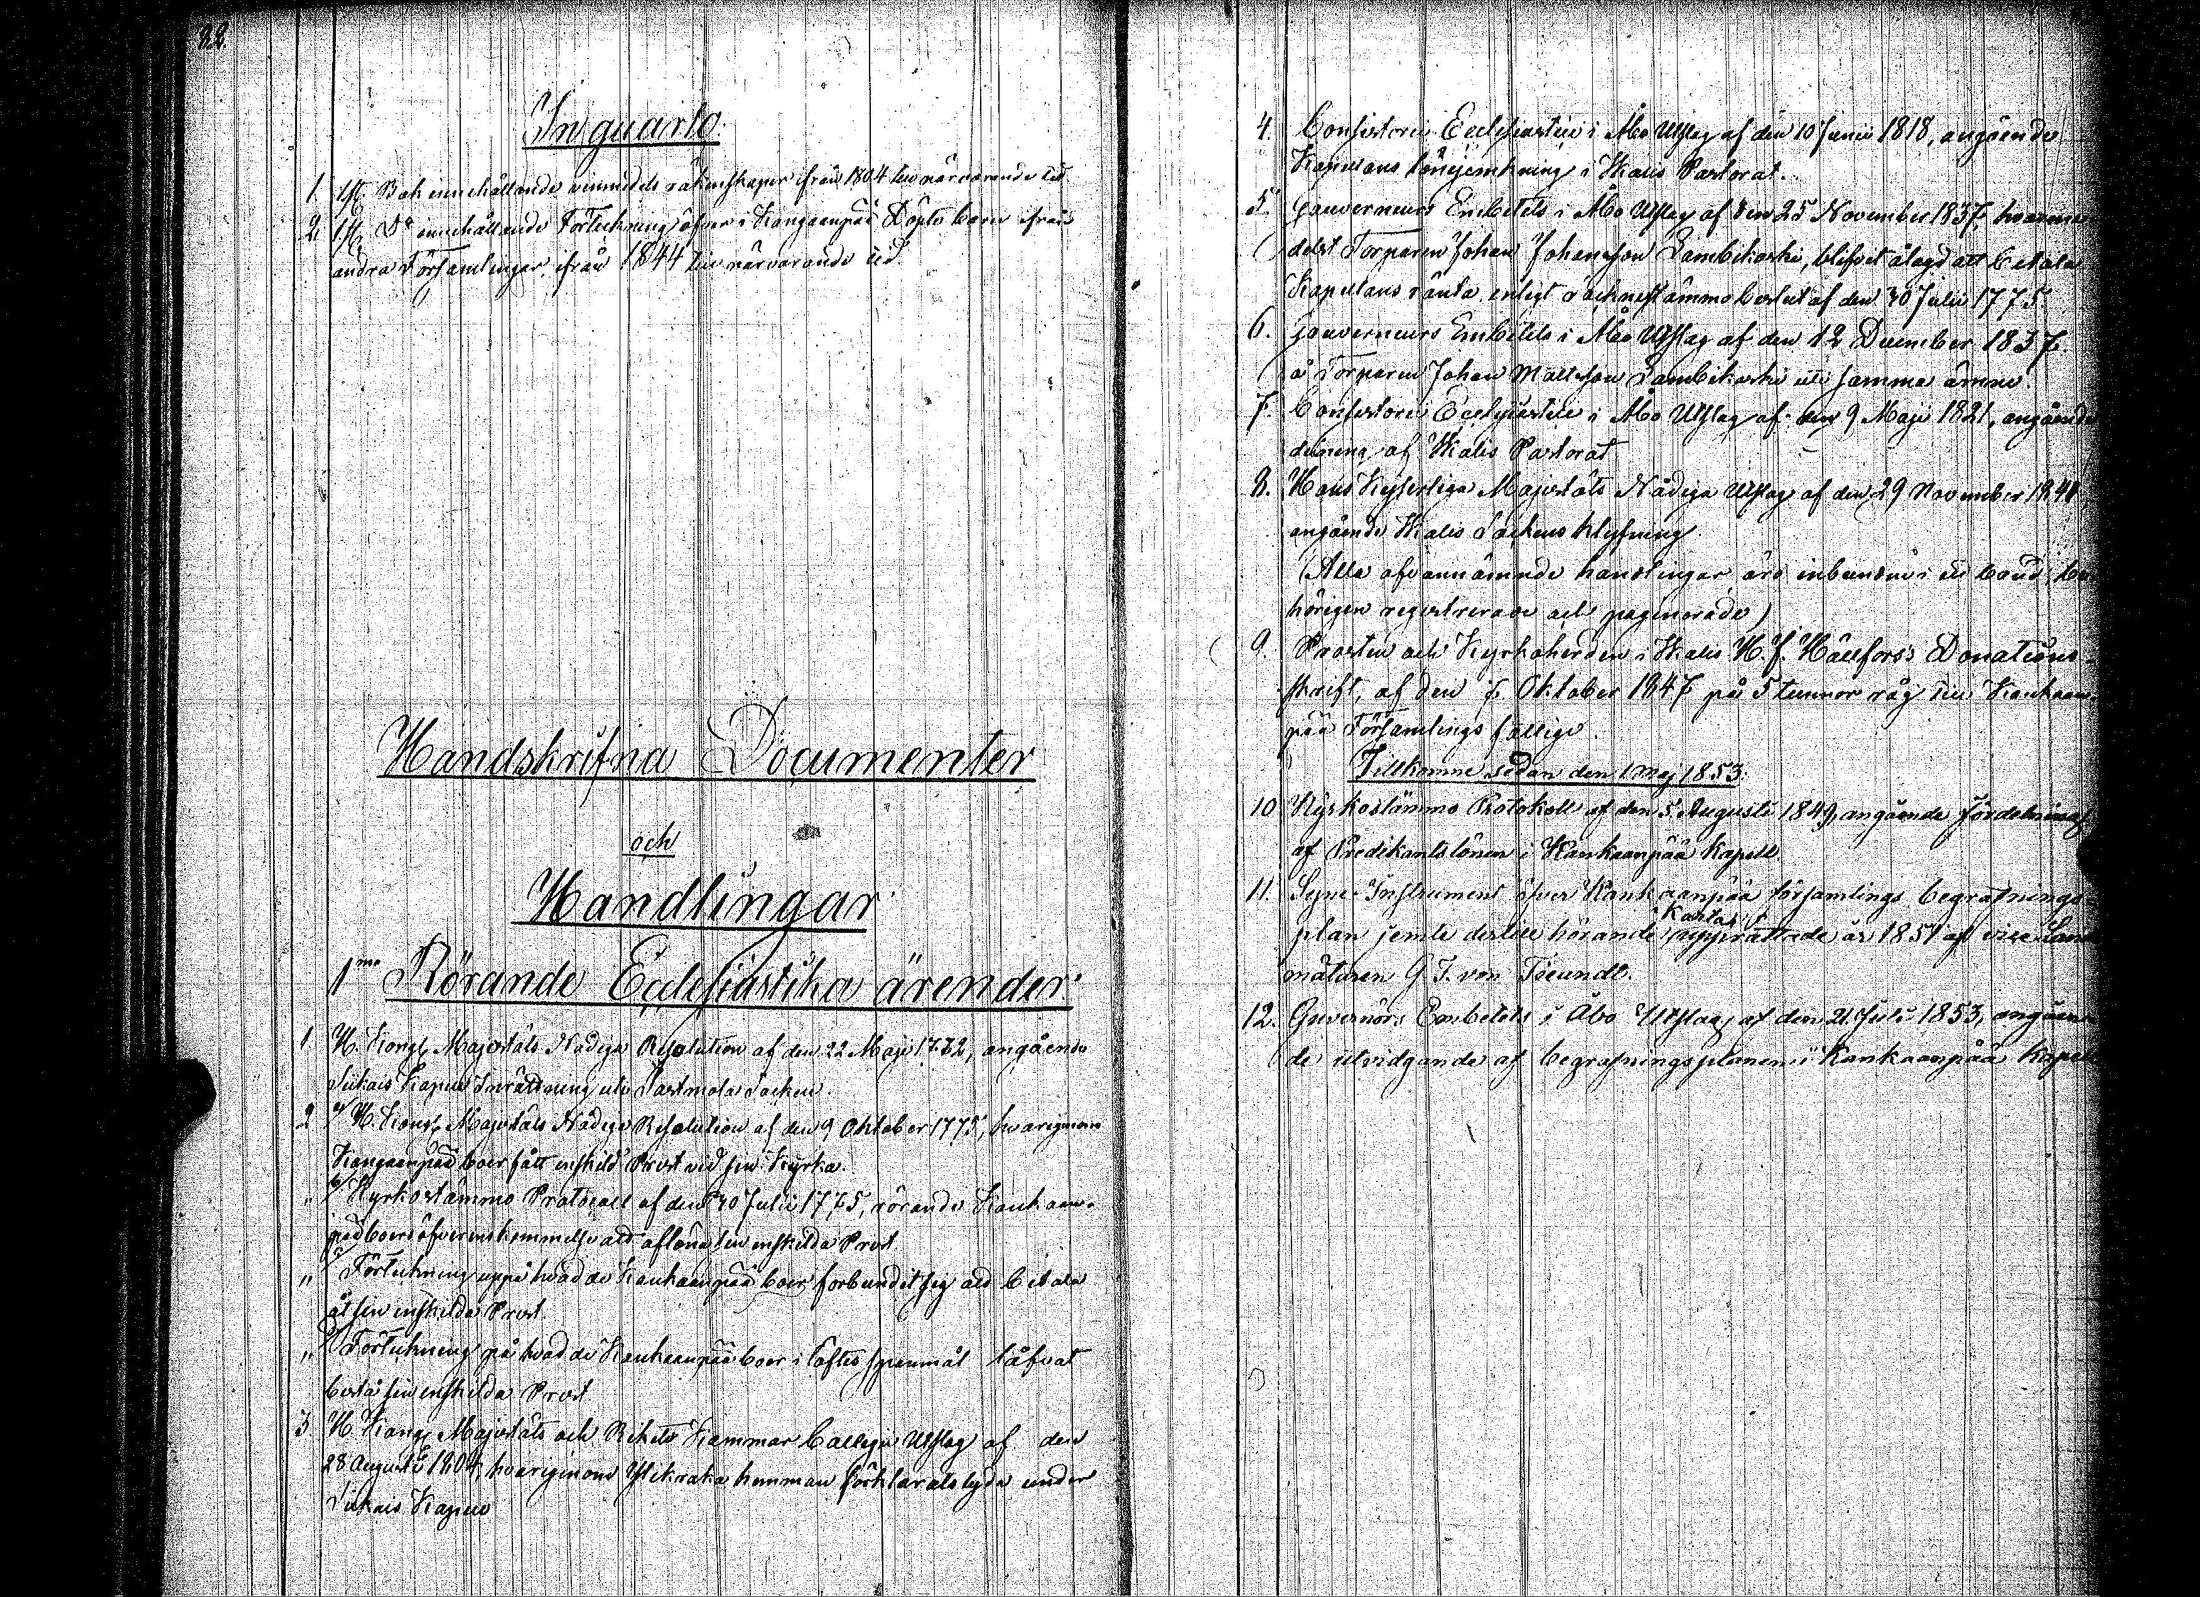 22.
In quarto.
1. 1 st. Bok innehållande räkenskaper ifrån 1804 till närvarande tid
2. 1 st. D:o innehållande Förteckning öfver i Kangaanpää Döpta barn ifrån
andra Församlingar, ifrån 1844 till närvarande tid.
Handskrifna Documenter
och
Handlingar
1mo Rörande Ecclesiastika ärender.
1 H. Kongl. Majestäts Nådiga Resolution af den 22 Maji 1772, angående
Siikais Kapell Inrättning uti Sastmola Socken.
2 a/ H. Kongl. Majestäts Nådiga Resolution af den 9 Oktober 1775, hvarigenom
Kangaanpää boer fått enskild Prest vid sin Kyrka.
" b/ Kyrkostämmo Protocoll af den 30 Julii 1775, rörande Kankaan-
pää boers öfverenskommelse att aflöna sin enskilda Prest.
" c/ Förteckning uppå hvad de Kankaanpää boer förbundit sig att betala
åt sin enskilda Prest.
" d/ Förteckning på hvad de Kankaanpää boer i löftes spanmål låfvat
bestå sin enskilda Prest
3. H. Kongl. Majestäts och Rikets Kammar Collegii Utslag af den
28 Augusti 1804, hvarigenom hemman förklarats lyda under
Siikais Kapell
4. Consistorii Ecclesiastici i Åbo Utslag af den 10 Junii 1818, angående
Kapellans lönejemkning i Ikalis Pastorat.
5. Gouverneurs Embetets i Åbo Utslag af den 25 November 1837, hvarme-
delst Torparen Johan Johansson Lambikoski, blifvit ålagd att betala
Kapellans ränta enligt socknestämmo beslut af den 30 Julii 1775.
6. Gouverneurs Embetets i Åbo Utslag af den 12 December 1837.
å Torparen Johan Mattsson Lambikoski uti samma ämne.
7. Consistorii Ecclesiastici i Åbo Utslag af den 9 Maji 1821, angående
delning af Ikalis Pastorat
8. Hans Kejserliga Majestäts Nådiga Utslag af den 29 November 1841,
angående Ikalis Sockens klyfning.
(Alla ofvannämnde handlingar äro inbundne i ett band, be-
hörigen registrerade och paginerade)
9. Prosten och Kyrkoherden i Ikalis H. J. Hällfors's Donations-
skrift, af den 7. Oktober 1847 på 5 tunnor råg till Kankaan-
pää Församlings fattige.
Tillkomne sedan den 1 Maj 1853.
10 Kyrkostämmo Protokoll af den 5. Augusti 1849, angående fördelning
af Predikantslönen i Kankaanpää Kapell.
11. Syne-Instrument öfver Kankaanpää församlings begrafnings-
plan jemte dertill hörande karta, upprättade år 1851 af vice Land
mätaren G. F. von
12. Guvernörs Embetets i Åbo Utslag af den 21 Juli 1853, angåen-
de utvidgande af begrafningsplanen i Kankaanpää Kapell